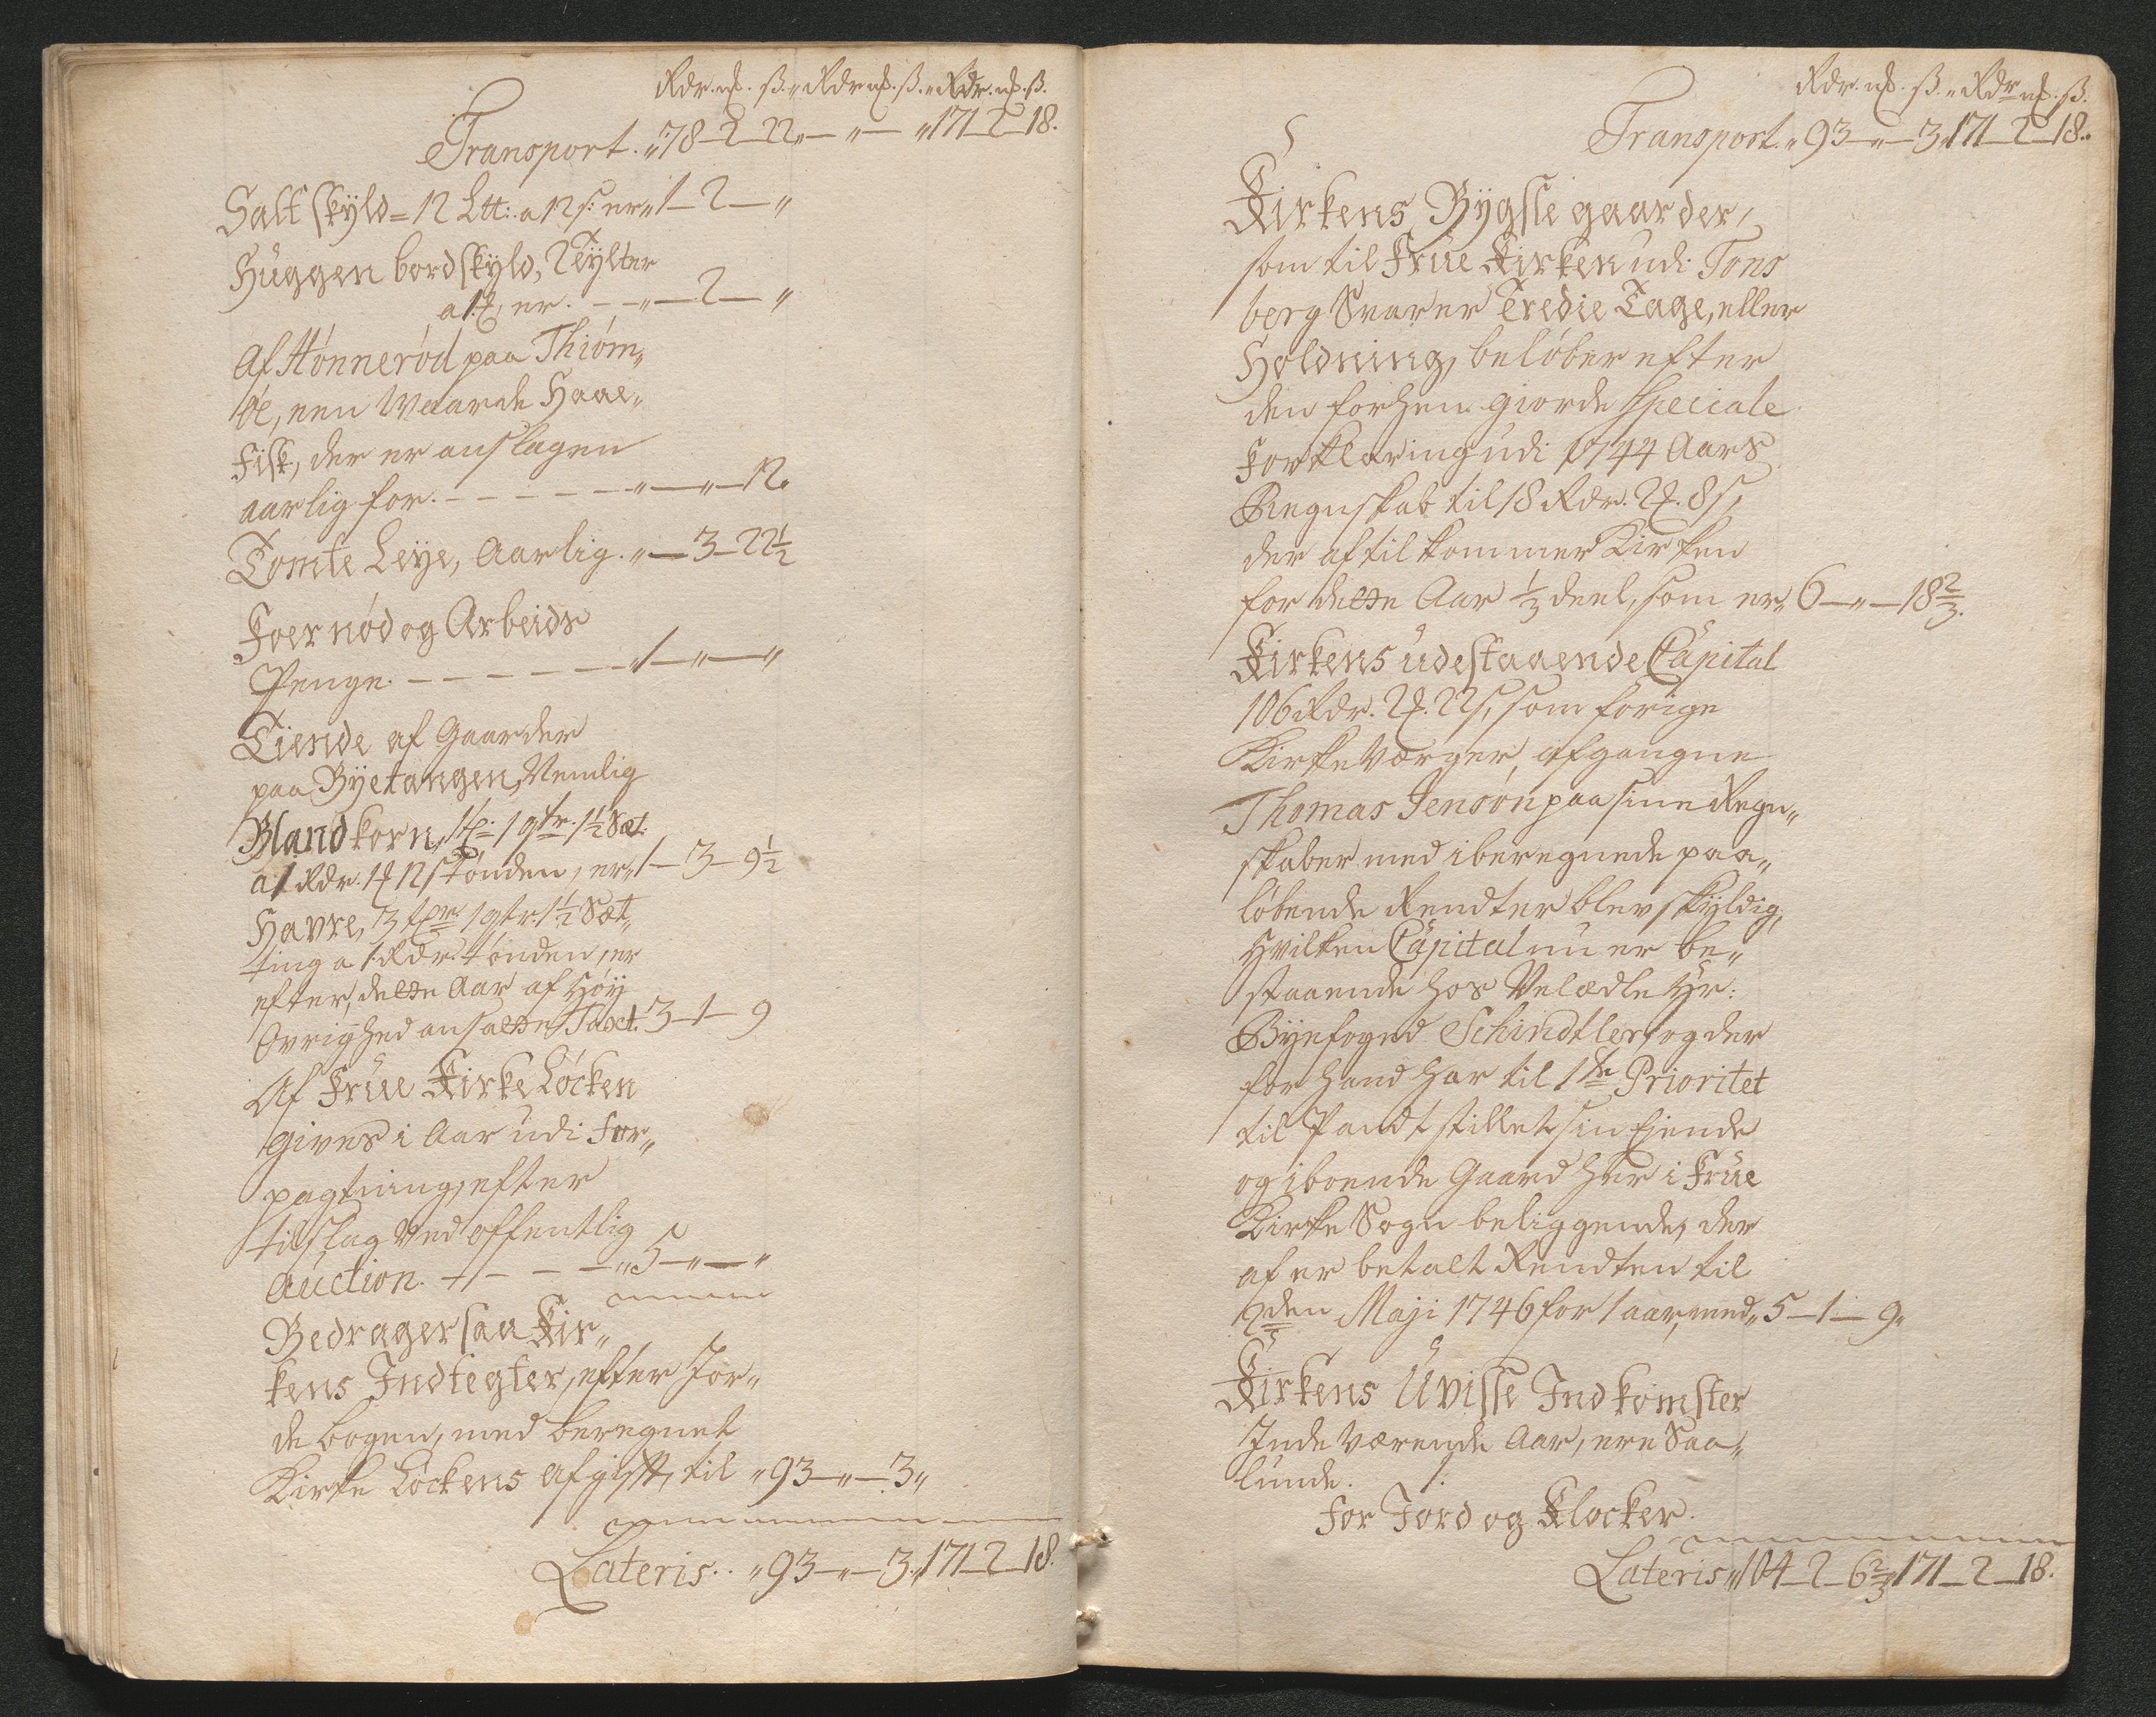 Rdr. mk. ß. „ Rdr mk. ß. „ Rdr. mk. ß.
Transport. „ 78–2–22 „ — „ — „ 171–2–18.
Salt skyld = 12 Ltt: a 12 s: er „ 1–2–„
Huggen bord skyld, 2 Tylter
a 1 mk, er. – – „ — 2 — „
Af Hönneröd paa Thiöm„
öe, een Waarde Haae„
Fisk, der er anslagen
aarlig for. – – – – – – „ — „ — 12.
Tomte Leye, Aarlig. „ — 3–22½
Foer nöd og Arbeids
Penge. – – – – – – – 1 — „ — „
Tiende af Gaarder
paa Byetangen, Nemlig
Bland korn, 1 tp: 1 qtr. 1½ Sæt:
a 1 Rdr. 1 mk 12 s Tönden, er „ 1–3–9½
Havre, 3 tpr. 1 qtr 1½ Sæt„
ting a 1 Rdr. tönden, er
efter, dette Aar af Höy
Övrighed ansatte Taxt. 3–1–9
Af Frue Kirke Löcken
gives i Aar udi For„
pagtning, efter
tilslag ved offentlig
Auction. – – – – „ 5 – „ — „
Bedrager saa Kir„
kens Indtegter, efter Jor„
de bogen, med beregnet
Kirke Löckens Afgift, til „ 93 — „ — 3 „
Lateris. . „ 93 — „ — 3. „ 171–2–18.
Rdr. mk. ß. „ Rdr mk. ß.
Transport. „ 93 — „ — 3. 171–2–18.
Kirkens Bygsle gaarder,
som til Frue Kirken udi Tons
berg Svarer Tredie Tage, eller
Holdning, belöber efter
den forhen giorde Speciale
Forklaring udi 1744 Aars
Regnskab til 18 Rdr. 2 mk. 8 s,
der af tilkommer Kirken
for dette Aar ⅓ deel, som er „ 6 — „ — 18⅔.
Kirkens udestaaende Capital
106 Rdr. 2 mk. 22 s, som forige
Kirke Værger, afgangne
Thomas Jensön paa sine Regn„
skaber med iberegnede paa„
löbende Rendter blev skyldig,
Hvilken Capital nu er be„
staaende hos Velædle Hr:
Byefoged Schindtler, og der
for Hand har til 1te Prioritet
til Pandt stillet sin Ejende
og iboende Gaard her i Frue
Kirke Sogn beliggende, der
af er betalt Rendten til
2den Maji 1746 for 1 aar, med „ 5–1–9„
Kirkens Uvisse Indkomster
Inde Værende Aar, ere Saa„
lunde.
For Jord og Klocker.
Lateris „ 104–2–6⅔ „ 171–2–18.